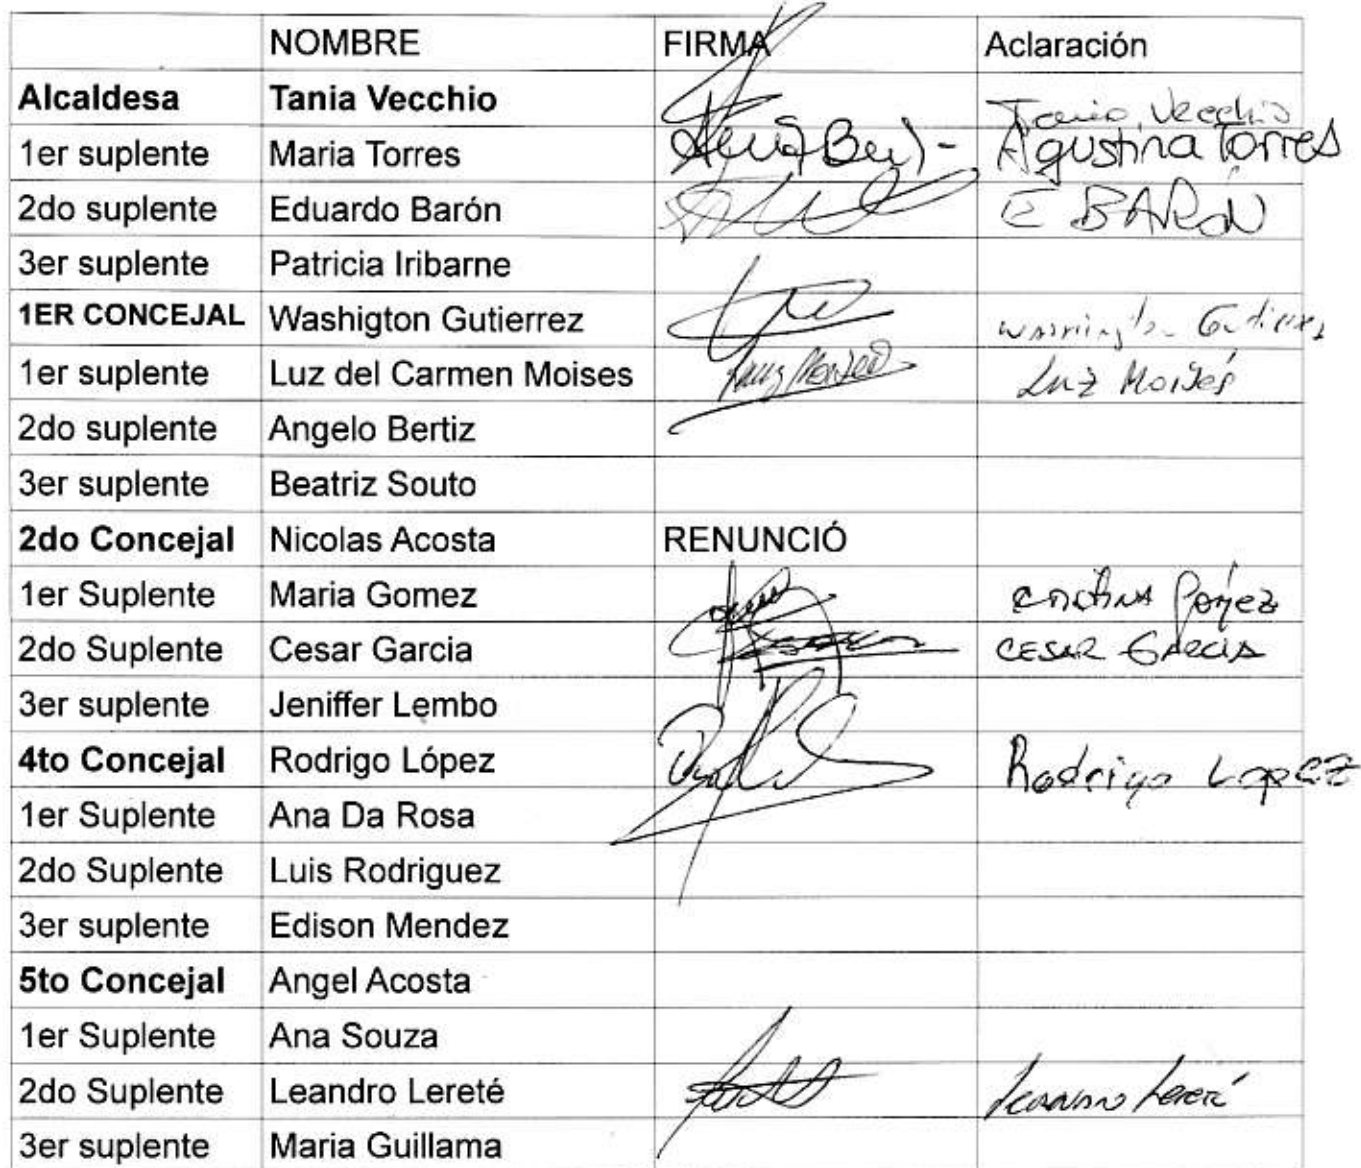 NOMBRE FIRMA Aclaración
Alcaldesa Tania Vecchio Tania Vecchio
1er suplente Maria Torres Agustina Torres
2do suplente Eduardo Barón E BARÓN
3er suplente Patricia Iribarne
1ER CONCEJAL Washigton Gutierrez Washington Gutierrez
1er suplente Luz del Carmen Moises Luz Moisés
2do suplente Angelo Bertiz
3er suplente Beatriz Souto
2do Concejal Nicolas Acosta RENUNCIÓ
1er Suplente Maria Gomez
2do Suplente Cesar Garcia CESAR GARCIA
3er suplente Jeniffer Lembo
4to Concejal Rodrigo López Rodrigo Lopez
1er Suplente Ana Da Rosa
2do Suplente Luis Rodriguez
3er suplente Edison Mendez
5to Concejal Angel Acosta
1er Suplente Ana Souza
2do Suplente Leandro Lereté Leandro Lereté
3er suplente Maria Guillama